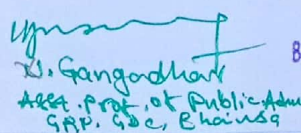 N. Gangadhar
Asst. Prof. of Public Admn
GRP. GDC, Bhainsa
B